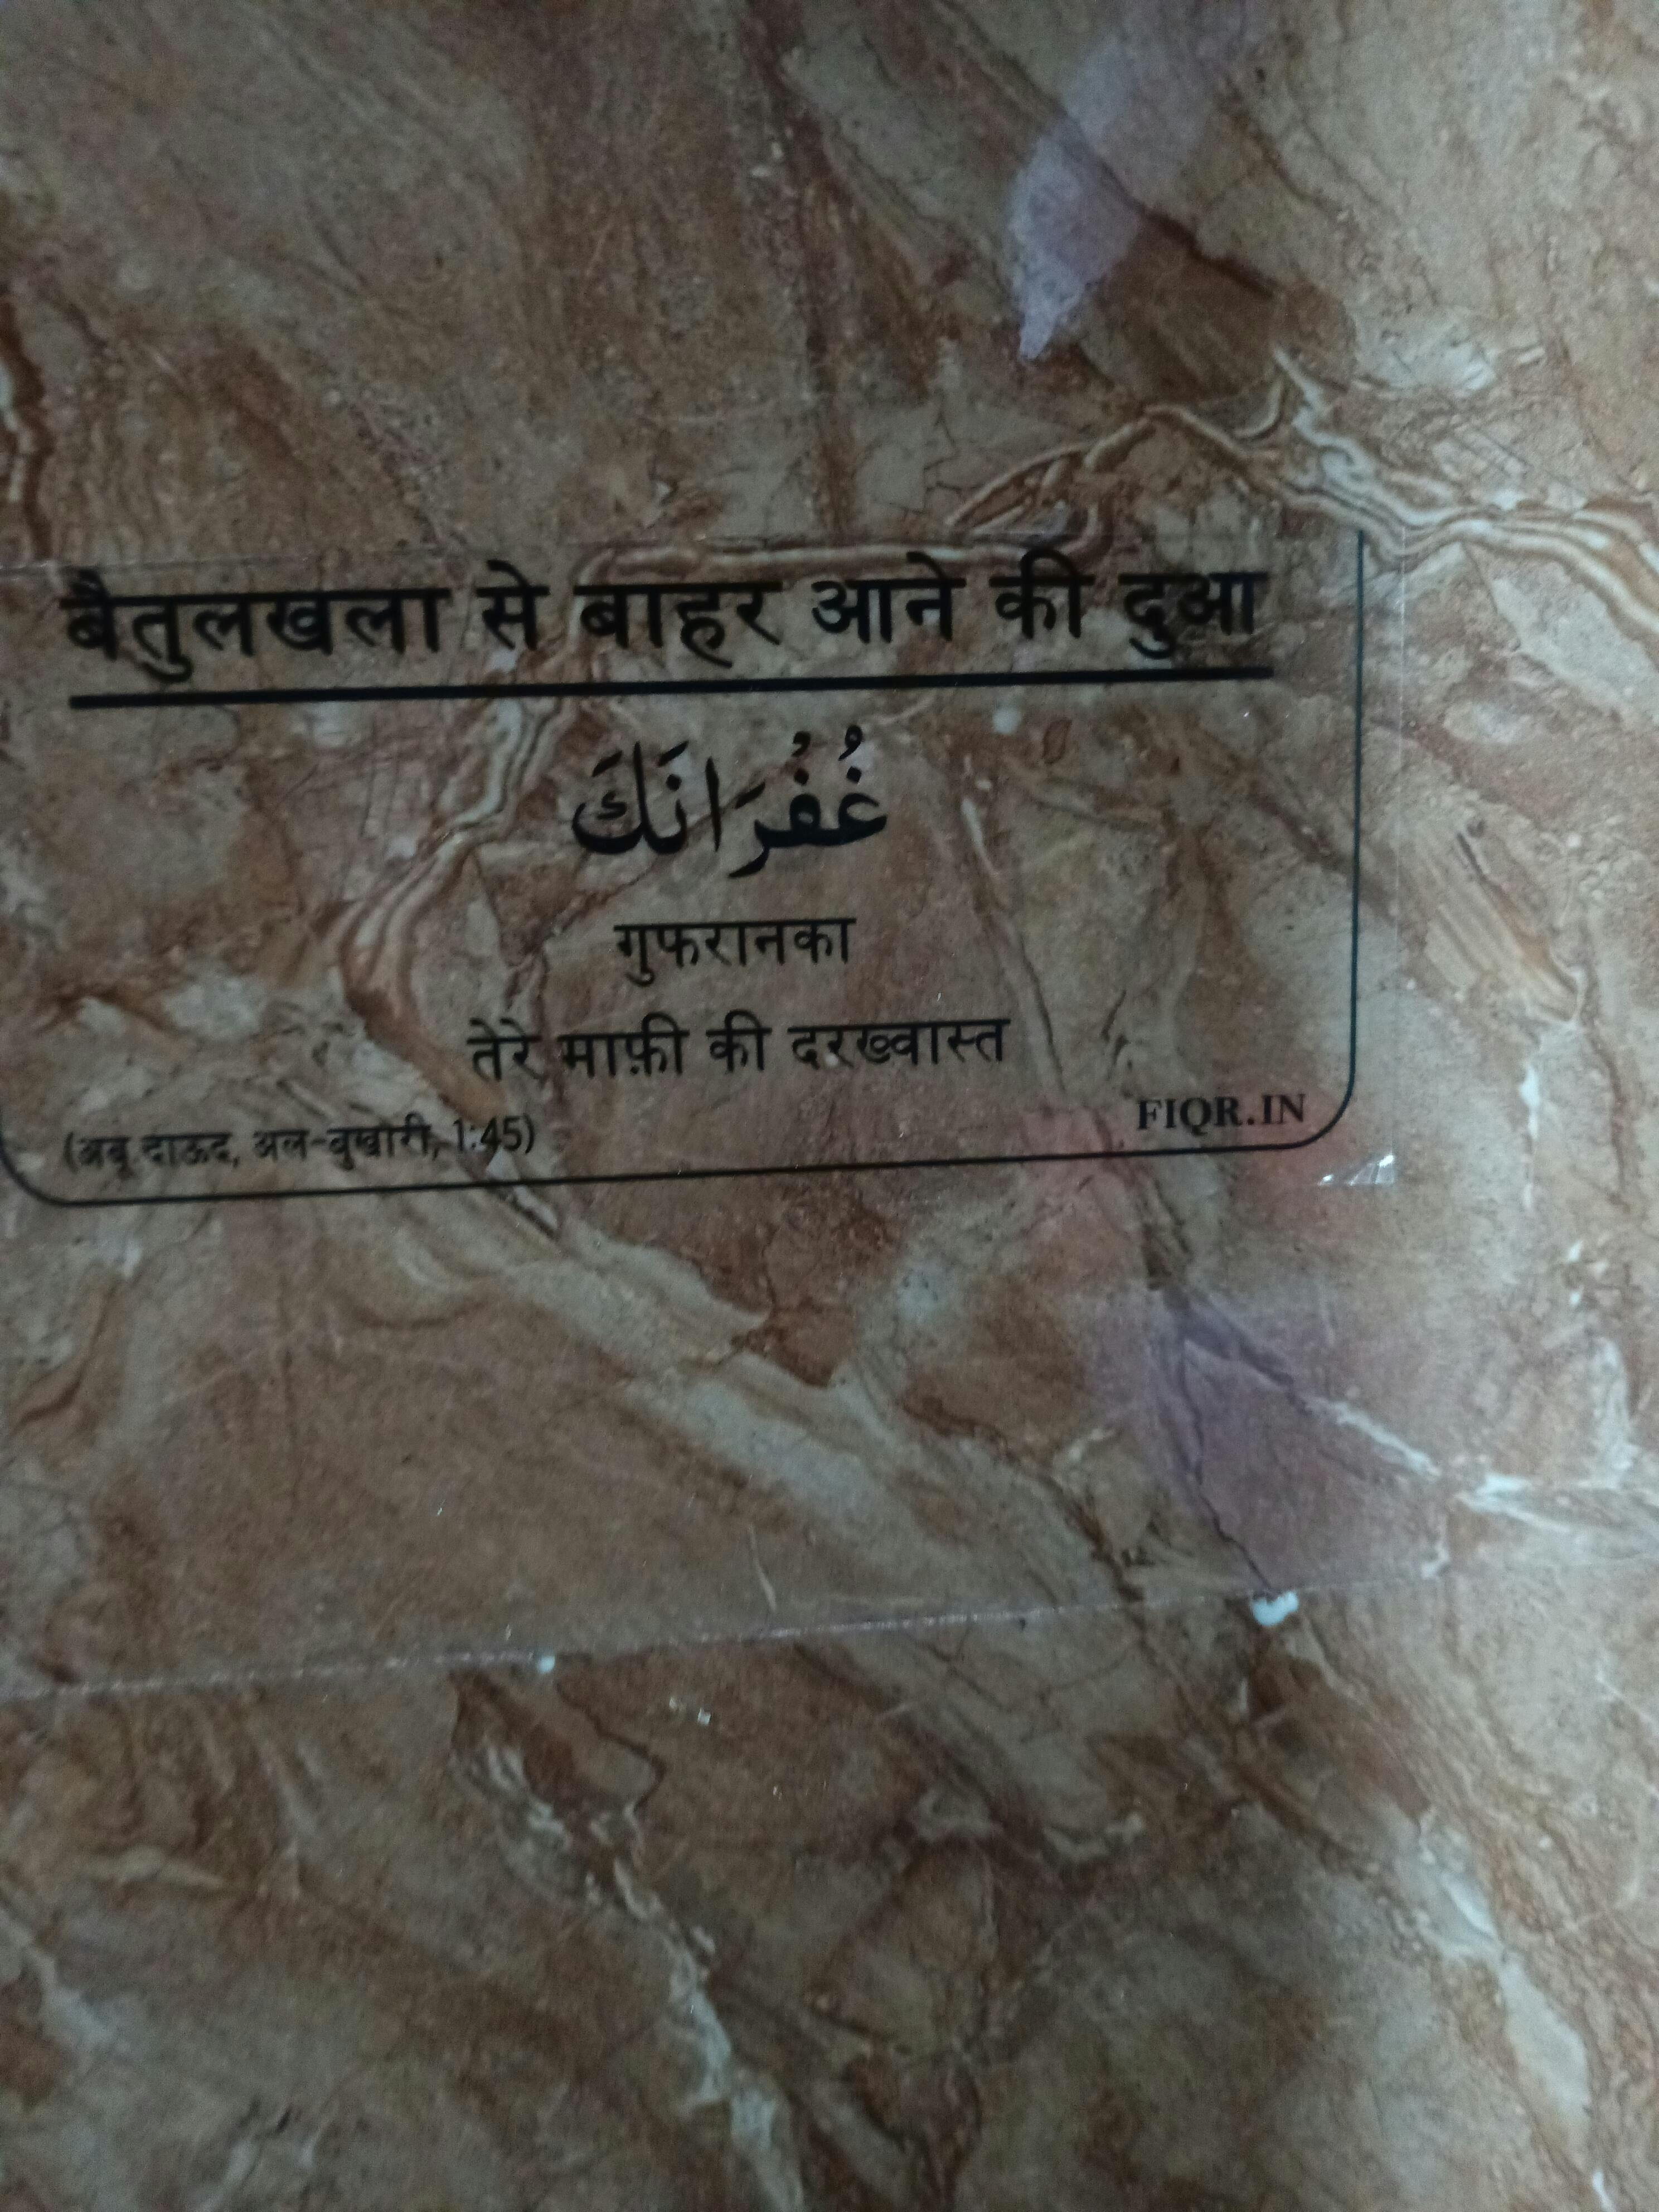 बैतुलखला से बाहर आने की दुआ
غُفُرَانَكَ
गुफरानका
तेरे माफ़ी की दरख्वास्त
FIQR.IN
(अबू दाऊद, अल-बुखारी, 1:45)